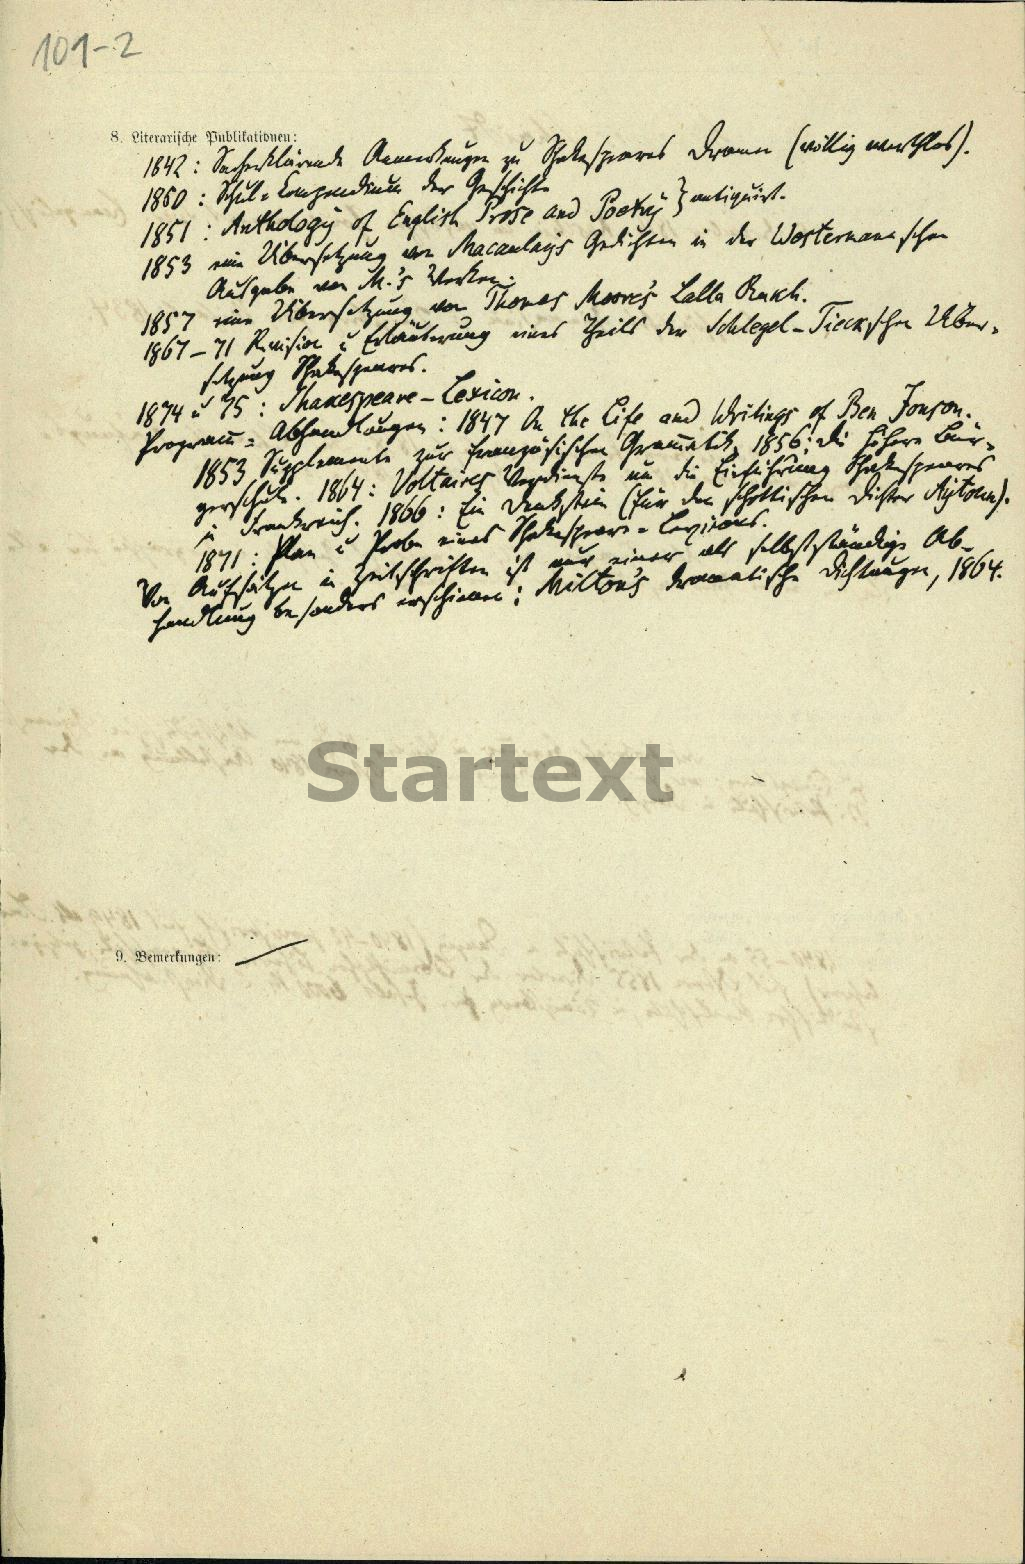 101-2
8. Literarische Publikationen:
1842: Sacherklärende Anmerkungen zu Shakespeares Dramen (völlig werthlos).
1850: Schul-Compendium der Geschichte
1851: Anthology of English Prose and Poetry } antiquirt.
1853 eine Übersetzung von Macaulays Gedichten in der Westermannschen
Ausgabe von M.'s Werken.
1857 eine Übersetzung von Thomas Moore's Lalla Rukh.
1867-71 Revision u Erläuterung eines Theils der Schlegel-Tieckschen Über-
setzung Shakespeares.
1874 u 75: Shakespeare-Lexicon.
Programm-Abhandlungen: 1847 On the Life and Writings of Ben Jonson.
1853 Supplemente zur französischen Grammatik. 1856: die höhere Bür-
gerschule. 1864: Voltaires Verdienste um die Einführung Shakespeares
in Frankreich. 1866: Ein Denkstein (für den schottischen Dichter Aytoun).
1871: Plan u Probe eines Shakespeare-Lexicons.
Von Aufsätzen in Zeitschriften ist nur einer als selbstständige Ab-
handlung besonders erschienen: Milton's dramatische Dichtungen, 1864.
Startext
9. Bemerkungen: —